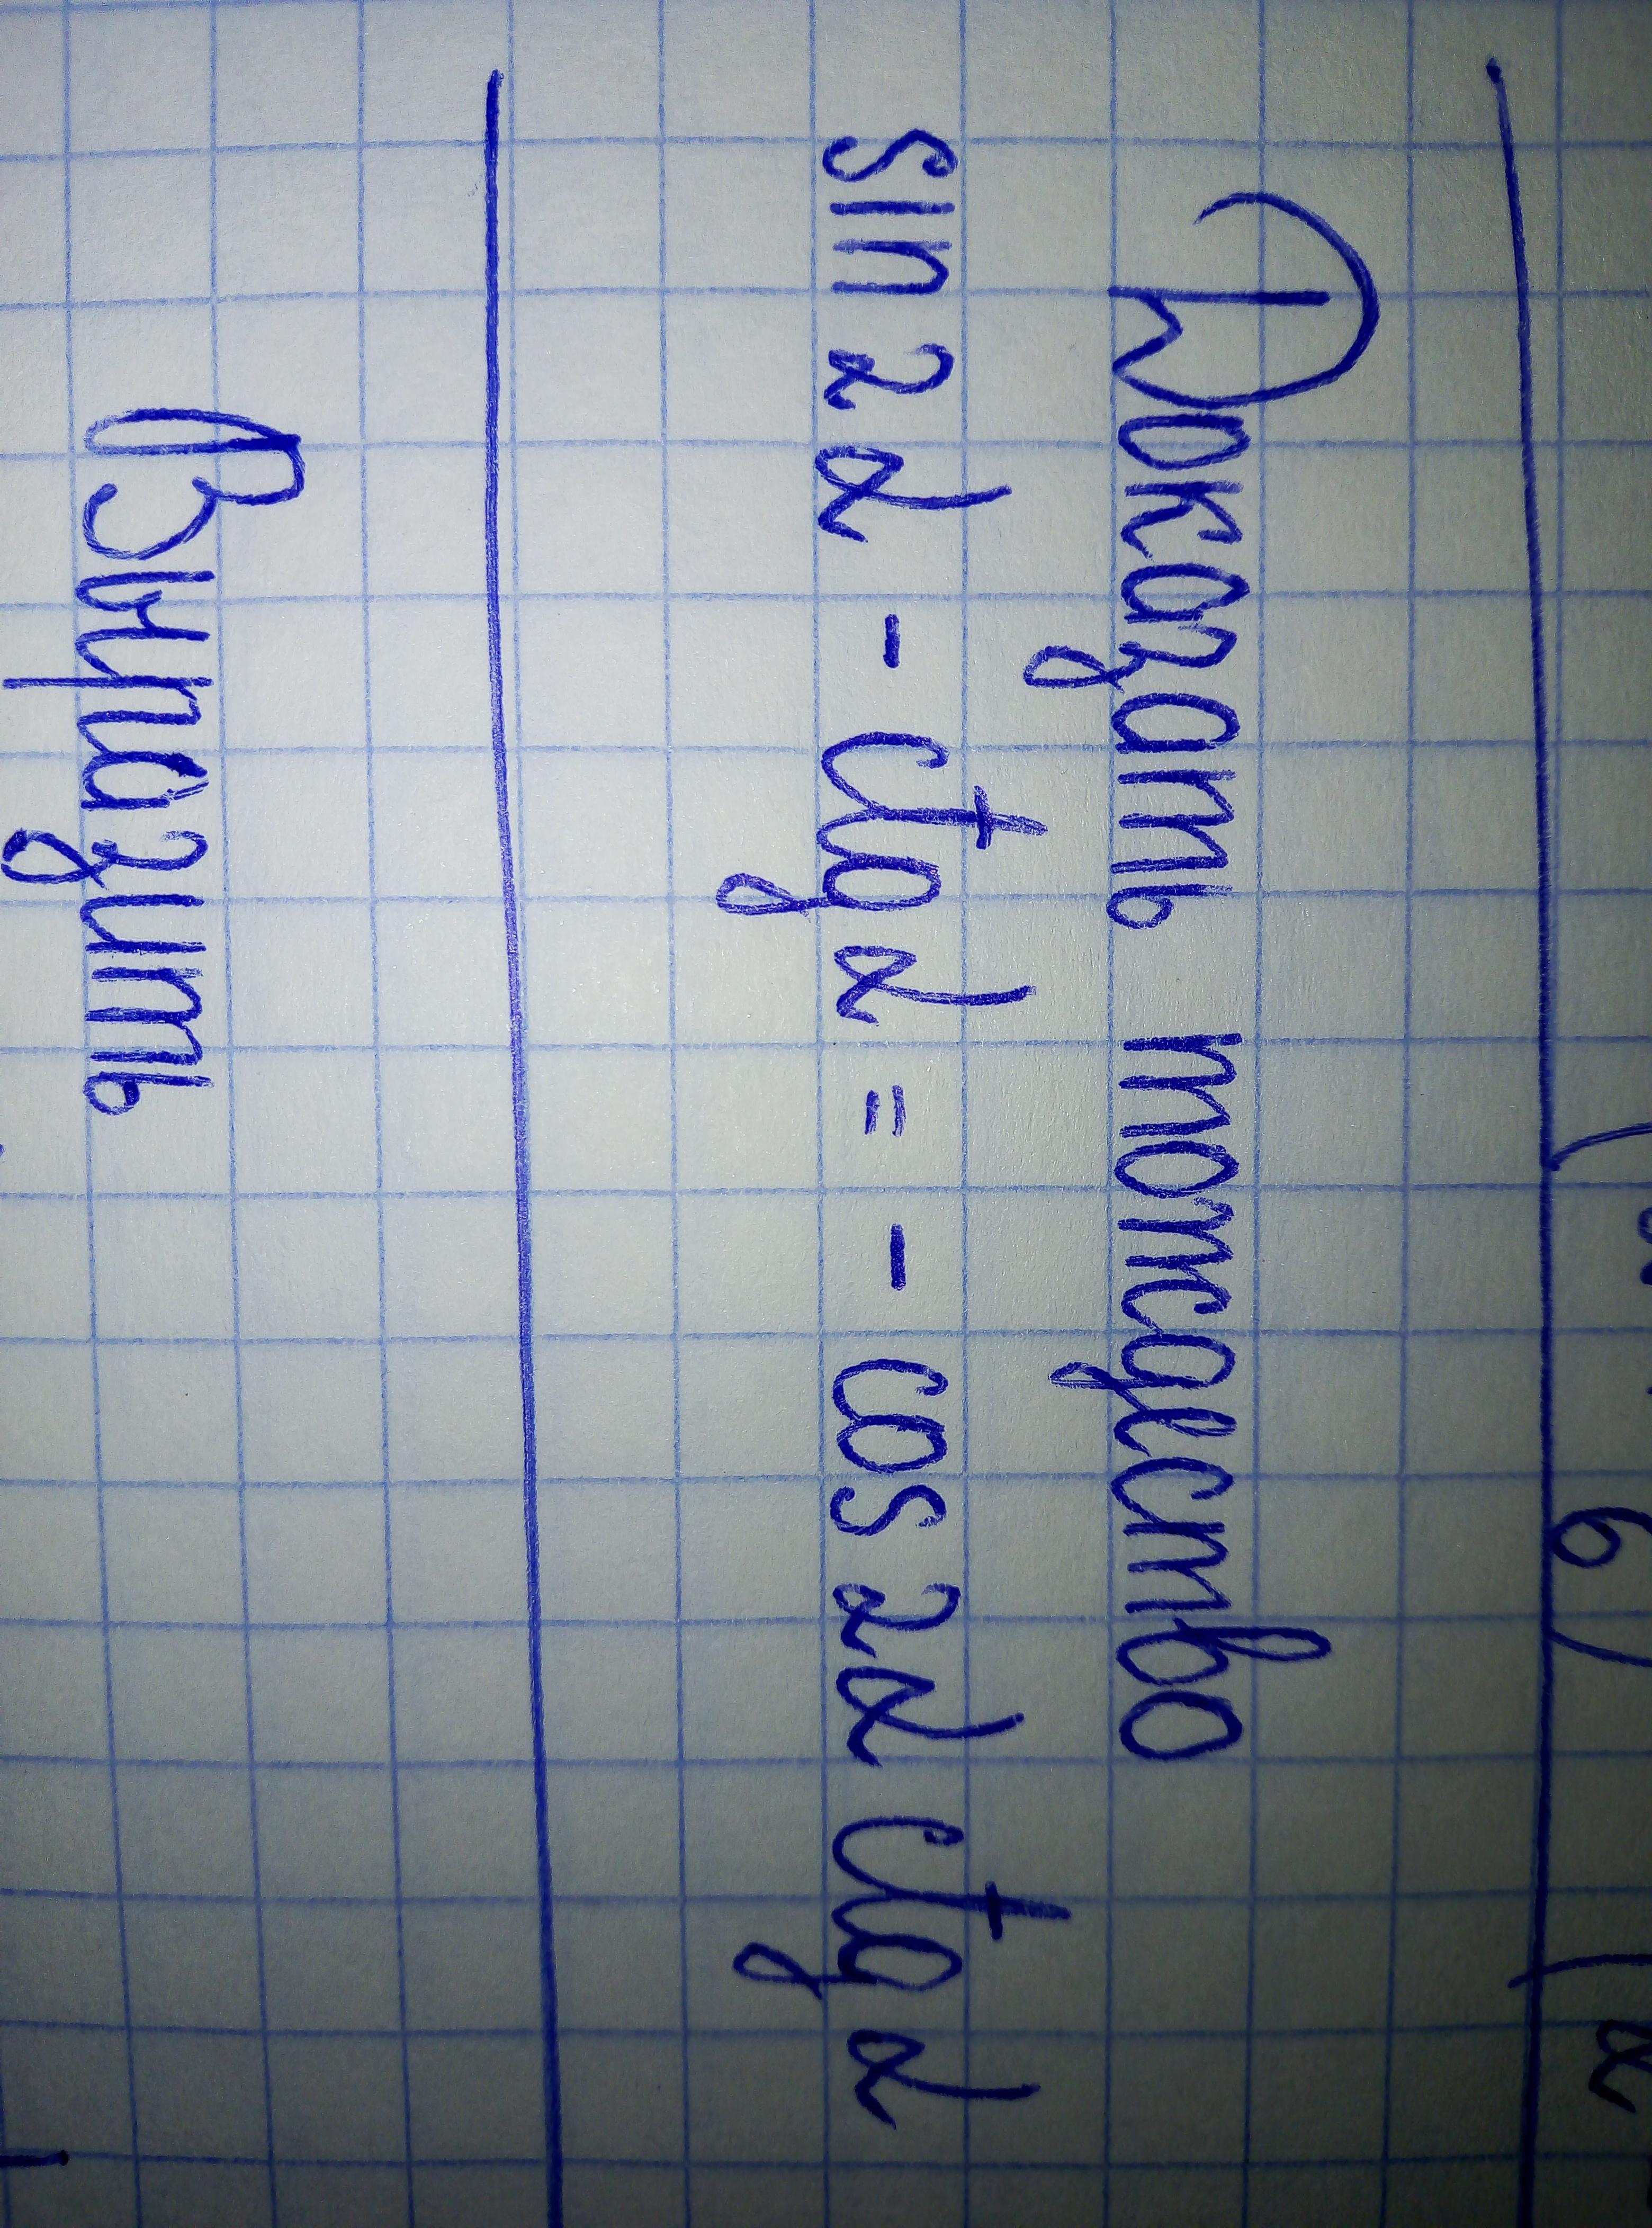 Доказать тождество
sin 2α - ctg α = - cos 2α ctg α
Выразить